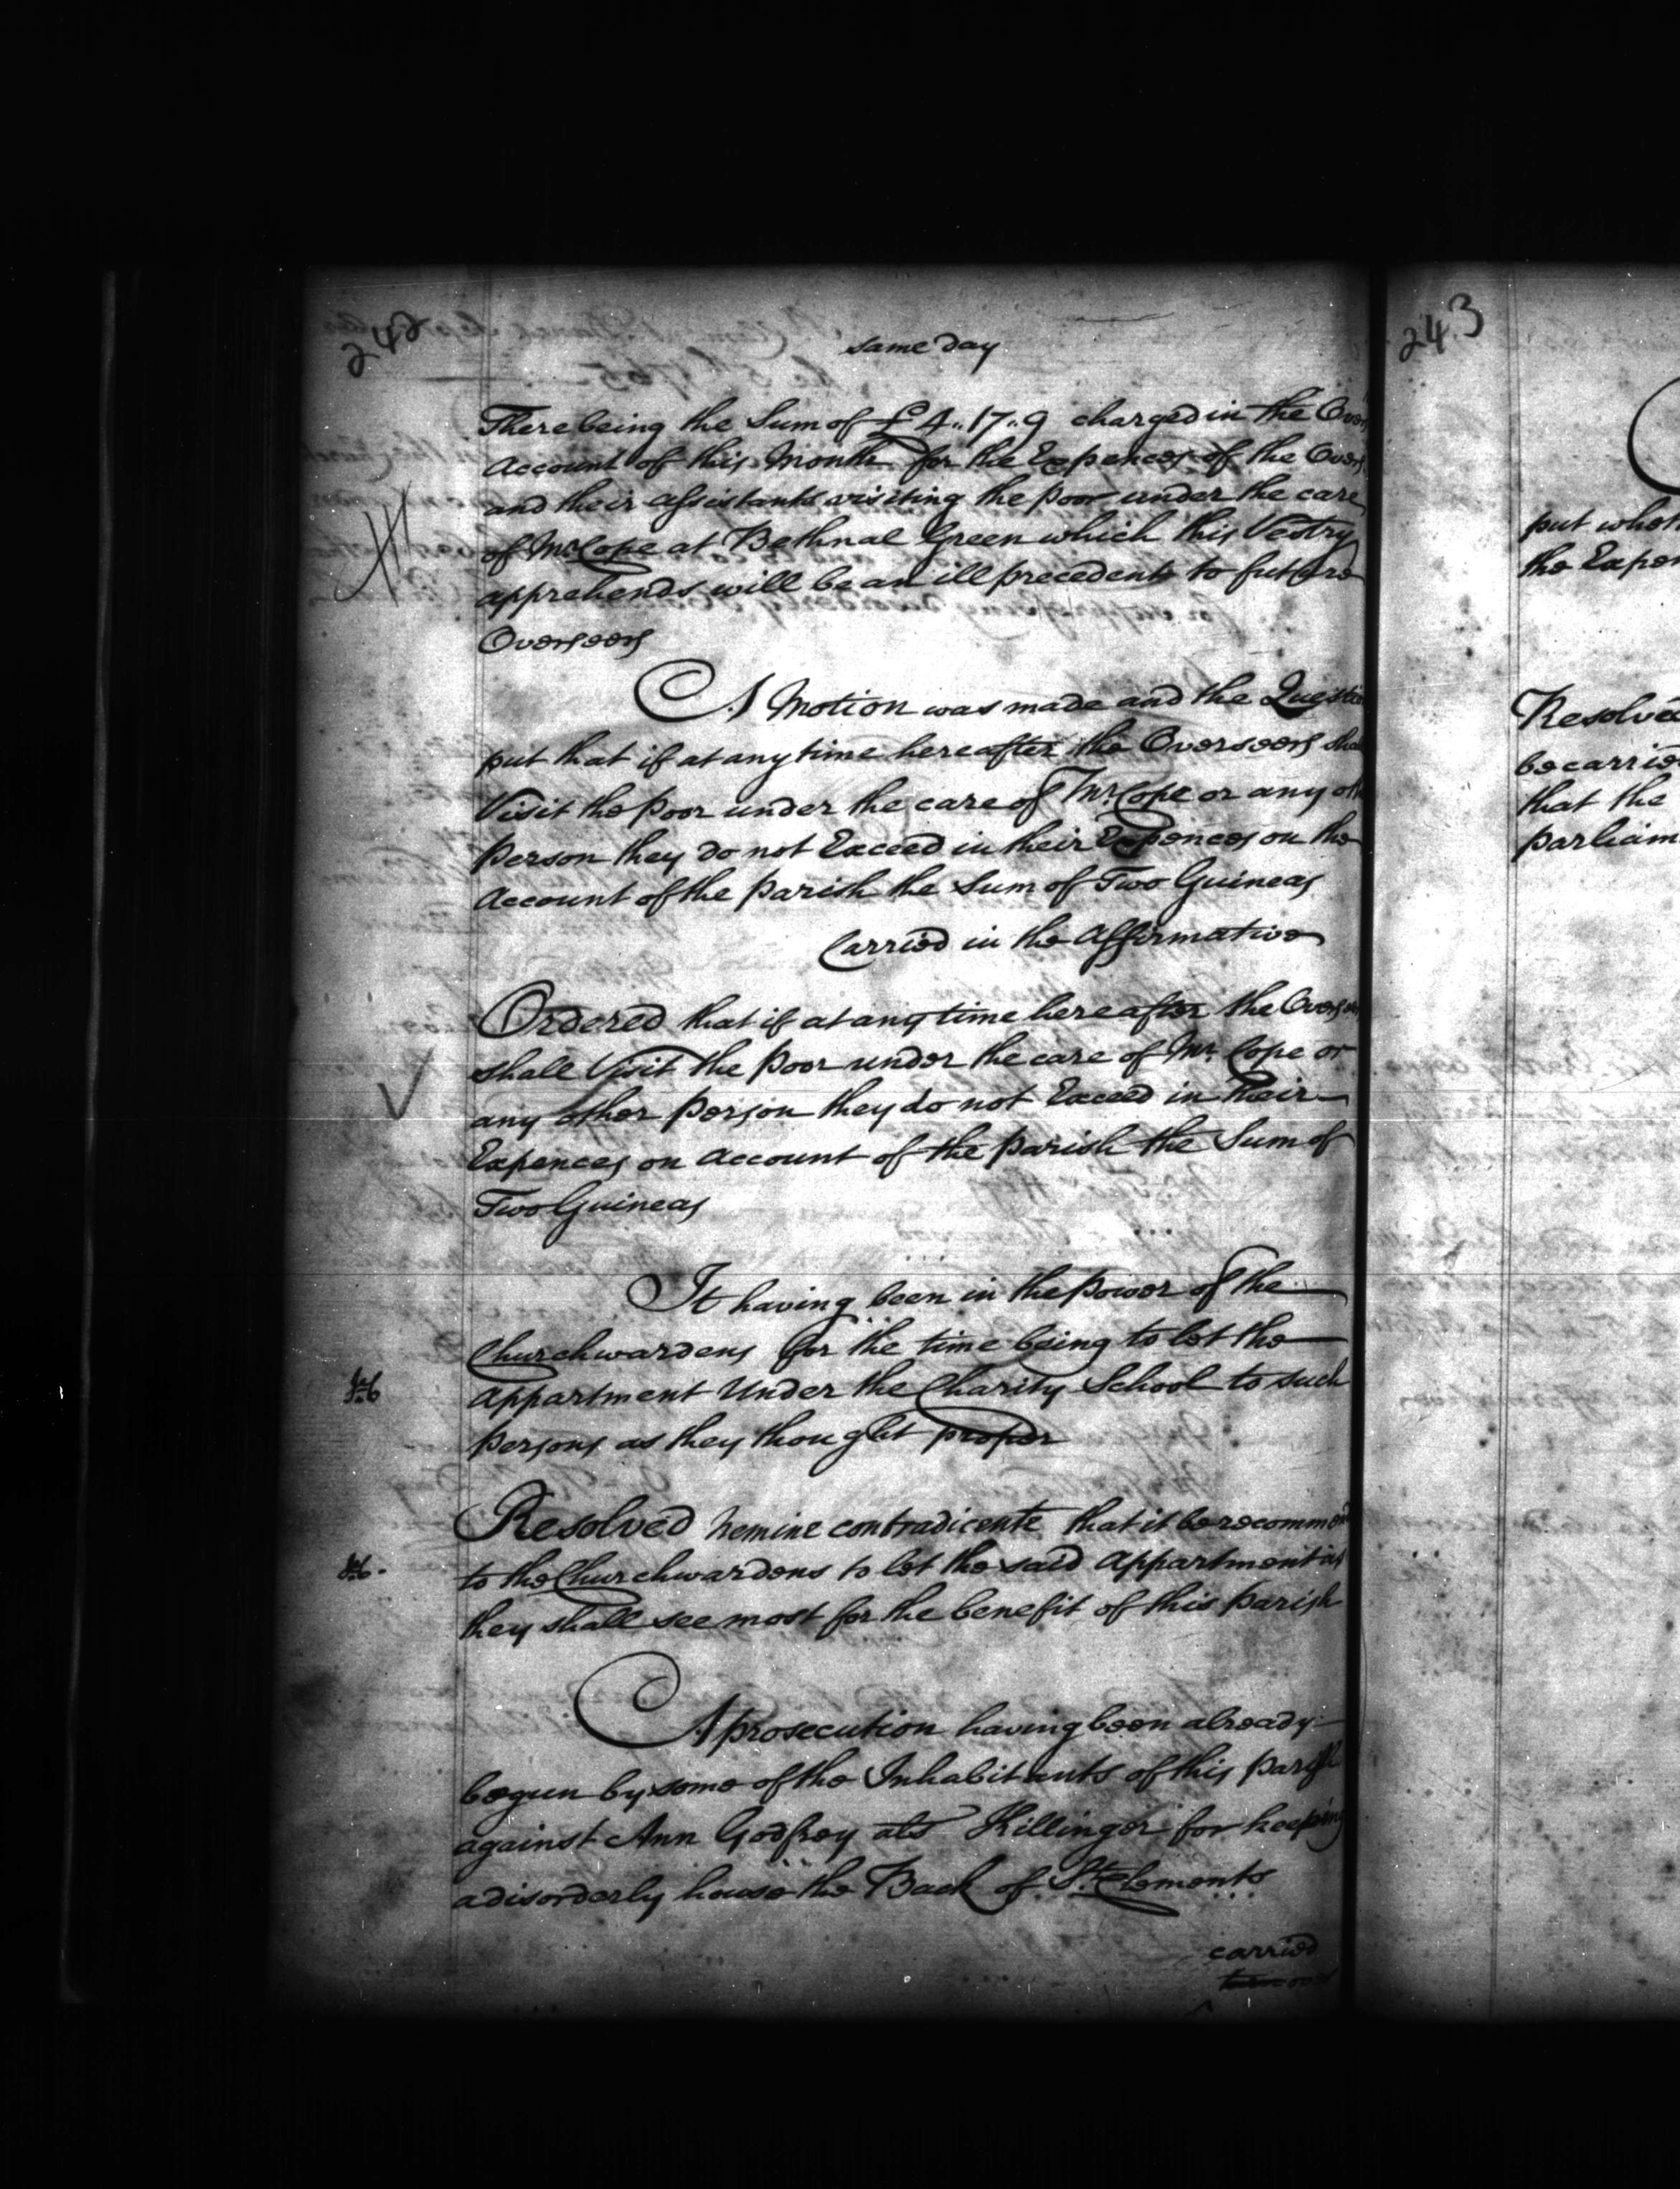 242
same day
There being the Sum of £4..17..9 charged in the Overs
Account of this Month for the Expences of the Overs
and their assistants visiting the poor under the care
of Mr Cope at Bethnal Green which this Vestry
apprehends will be an ill precedent to future
Overseers
A Motion was made and the Questio
put that if at any time hereafter the Overseers shal
Visit the Poor under the care of Mr. Cope or any oth
Person they do not Exceed in their Expences on the
Account of the parish the Sum of Two Guineas
Carried in the Affirmative
Ordered that if at any time hereafter the Overseers
shall Visit the Poor under the care of Mr. Cope or
any other Person they do not Exceed in their
Expences on Account of the parish the Sum of
Two Guineas
It having been in the Power of the
Churchwardens for the time being to let the
Appartment Under the Charity School to such
Persons as they thought proper
Resolved Nemine contradicente that it be recommend
to the Churchwardens to let the said Appartment as
they shall see most for the benefit of this Parish
A prosecution having been already
begun by some of the Inhabitants of this Parish
against Ann Godfrey als Killinger for keeping
a disorderly house the Back of St. Clements
carried
243
put whet
the Expen
Resolved
be carrie
that the
parliam